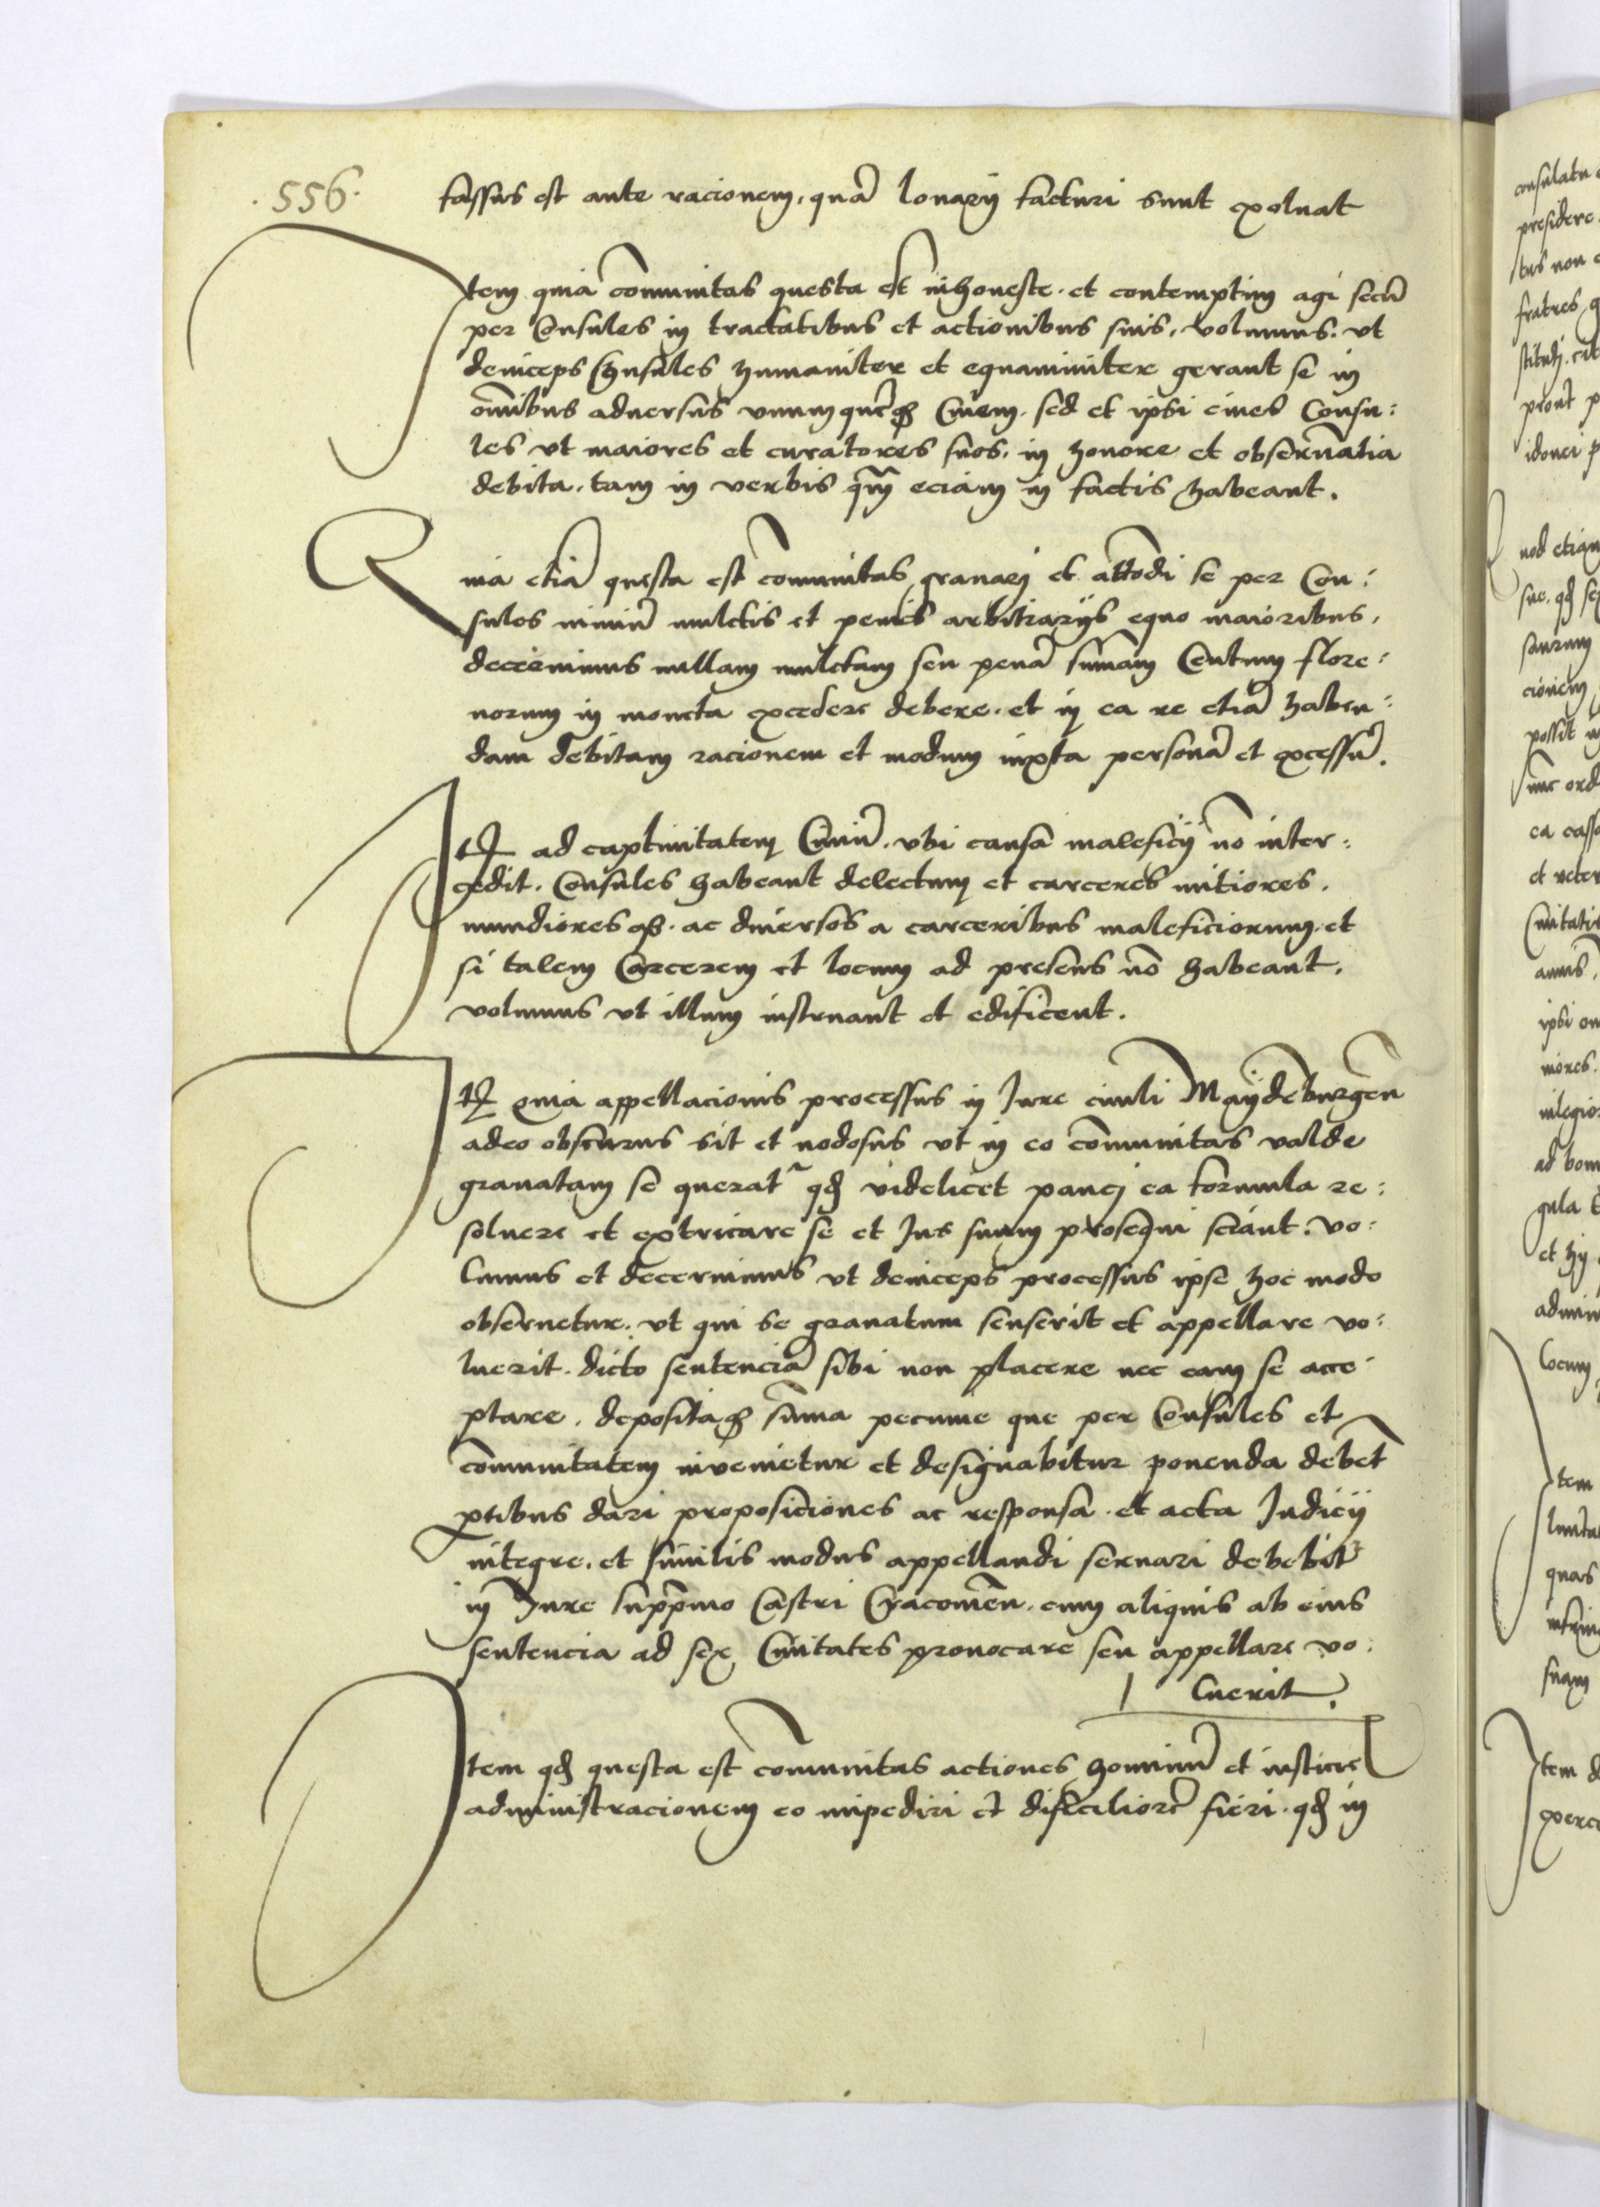 .556.
fassus est ante racionem, quā lonarij facturi sunt exoluat
Item quia cōmunitas questa est inhoneste et contemptim agi secū
per Consules in tractatibus et actionibus suis, volumus. vt
deinceps Consules humaniter et equanimiter gerant se in
omībus aduersus vnumquēq3 Ciuem. sed et ipsi ciues Consu:
les vt maiores et curatores suos, in honore et obseruātia
debita, tam in verbis q̄m eciam in factis habeant.
Quia etiā questa est cōmunitas grauarj et attōdi se per Con:
sules nimiū mulctis et penis arbitrarijs equo maioribus,
decernimus nullam mulctam seu penā sum̄am Centum flore:
norum in moneta excedere debere. et in ea re etiā haben:
dam debitam racionem et modum iuxta personā et excessū.
It̄ ad captiuitatem Ciuiū. vbi causa maleficij nō inter:
cedit. Consules habeant delectum et carceres mitiores,
mundioresq3. ac diuersos a carceribus maleficiorum. et
si talem Carcerem et locum ad presens nō habeant,
volumus vt illum instruant et edificent.
It̄ quia appellacionis processus in Iure ciuili Maydēburgeñ
adeo obscurus sit et nodosus vt in eo cōmunitas valde
grauatam se querat᷑ qd videlicet paucj ea formula re:
soluere et extricare se et Ius suum prosequi sciant. vo:
lumus et decernimus vt deinceps processus ipse hoc modo
obseruetur. vt qui se grauatum senserit et appellare vo:
luerit. dicto sentenciā sibi non placere nec eam se acce:
ptare, depositaq3 sūma pecunie que per Consules et
cōmunitatem inuenietur et designabitur ponenda debēt
ꝑtibus dari proposiciones ac responsa. et acta Iudicij
integre. et similis modus appellandi seruari debebit
in Iure sup̄p̄mo Castri Cracouieñ. cum aliquis ab eius
sentencia ad sex Ciuitates prouocare seu appellare vo:
luerit.
Item qd questa est cōmunitas actiones hominū et iusticie
administracionem eo impediri et dificiliorē fieri. qd in